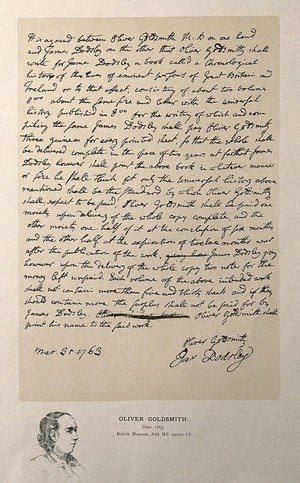 It is agreed between Oliver Goldsmith M. B on one hand
and James Dodsley on the other that Oliver Goldsmith shall
write for James Dodsley a book called a Chronological
history of the lives of eminent persons of Great Britain and
Ireland or to that effect, consisting of about two volumes
8vo. about the same size and letter with the universal
history published in 8vo for the writing of which and com
piling the same James Dodsley shall pay Oliver Goldsmith
three Guineas for every printed sheet, so that the whole shall
be delivered complete in the space of two years at farthest James
Dodsley however shall print the above book in whatever manner
or size he shall think fit only the Universal history above
mentioned shall be the standard by which Oliver Goldsmith
shall expect to be paid. Oliver Goldsmith shall be paid one
moiety upon delivery of the whole copy complete, and the
other moiety one half of it at the conclusion of six months
and the other half at the expiration of twelve months next
after the publication of the work, James Dodsley giving
however upon the delivery of the whole copy two notes for the
money left unpaid. Each volume of the above intended work
shall not contain more than five and thirty sheets and if they
should contain more the surplus shall not be paid for by
James Dodsley. Oliver Goldsmith shall
print his name to the said work.
Mar. 31 1763
Oliver Goldsmith
Jas Dodsley
OLIVER GOLDSMITH.
Date, 1763
British Museum, Add. MS. 19022. f.8.